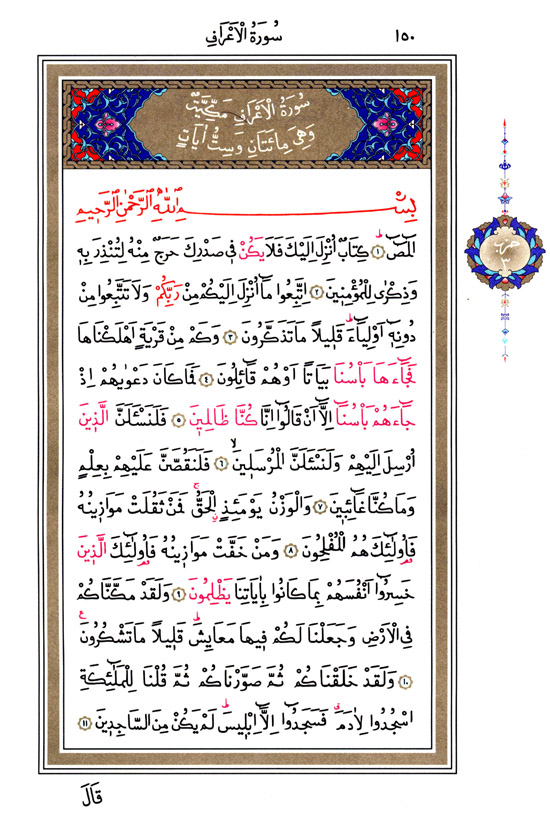 ١٥٠ سُورَةُ الْاَعْرَافِ
سُورَةُ الْاَعْرَافِ مَكِّيَّةٌ
وَهِيَ مِائَتَانِ وَسِتُّ اٰيَاتٍ
بِسْمِ اللّٰهِ الرَّحْمٰنِ الرَّحِيمِ
الٓمٓصٓ ﴿١﴾ كِتَابٌ اُنْزِلَ اِلَيْكَ فَلَا يَكُنْ فِي صَدْرِكَ حَرَجٌ مِنْهُ لِتُنْذِرَ بِهِ
وَذِكْرٰى لِلْمُؤْمِنِينَ ﴿٢﴾ اِتَّبِعُوا مَٓا اُنْزِلَ اِلَيْكُمْ مِنْ رَبِّكُمْ وَلَا تَتَّبِعُوا مِنْ
دُونِهِٓ اَوْلِيَٓاءَۜ قَلِيلًا مَا تَذَكَّرُونَ ﴿٣﴾ وَكَمْ مِنْ قَرْيَةٍ اَهْلَكْنَاهَا
فَجَٓاءَهَا بَأْسُنَا بَيَاتًا اَوْ هُمْ قَٓائِلُونَ ﴿٤﴾ فَمَا كَانَ دَعْوٰيهُمْ اِذْ
جَٓاءَهُمْ بَأْسُنَٓا اِلَّٓا اَنْ قَالُٓوا اِنَّا كُنَّا ظَالِمِينَ ﴿٥﴾ فَلَنَسْـَٔلَنَّ الَّذِينَ
اُرْسِلَ اِلَيْهِمْ وَلَنَسْـَٔلَنَّ الْمُرْسَلِينَۙ ﴿٦﴾ فَلَنَقُصَّنَّ عَلَيْهِمْ بِعِلْمٍ
وَمَا كُنَّا غَٓائِبِينَ ﴿٧﴾ وَالْوَزْنُ يَوْمَئِذٍۨ الْحَقُّۚ فَمَنْ ثَقُلَتْ مَوَازِينُهُ
فَاُو۬لٰٓئِكَ هُمُ الْمُفْلِحُونَ ﴿٨﴾ وَمَنْ خَفَّتْ مَوَازِينُهُ فَاُو۬لٰٓئِكَ الَّذِينَ
خَسِرُٓوا اَنْفُسَهُمْ بِمَا كَانُوا بِاٰيَاتِنَا يَظْلِمُونَ ﴿٩﴾ وَلَقَدْ مَكَّنَّاكُمْ
فِي الْاَرْضِ وَجَعَلْنَا لَكُمْ فِيهَا مَعَايِشَۜ قَلِيلًا مَا تَشْكُرُونَ۟
﴿١٠﴾ وَلَقَدْ خَلَقْنَاكُمْ ثُمَّ صَوَّرْنَاكُمْ ثُمَّ قُلْنَا لِلْمَلٰٓئِكَةِ
اسْجُدُوا لِاٰدَمَۗ فَسَجَدُٓوا اِلَّٓا اِبْلِيسَۜ لَمْ يَكُنْ مِنَ السَّاجِدِينَ ﴿١١﴾
قَالَ
حزب
٣